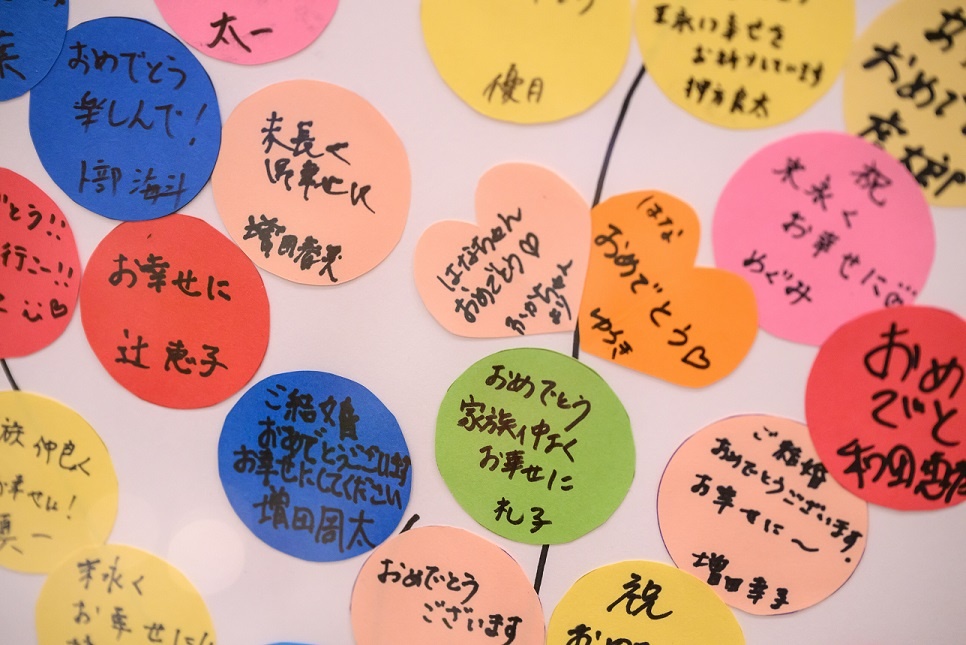 太一
優月
末永い幸せを
お祈りしています
おめで
おめでとう
楽しんで!
卜部 海斗
末長く
お幸せに
増田
はなちゃん
おめでとう♡
ふかちゃん
より
はな
おめでとう♡
ゆうき
祝
末永く
お幸せに
めぐみ
とう!!
行こー!!
お幸せに
辻 恵子
おめ
でと
和田
ご結婚
おめでとうございます
お幸せにしてください
増田周太
おめでとう
家族仲よく
お幸せに
礼子
ご結婚
おめでとうございます。
お幸せに〜
増田幸子
族仲良く
お幸せに!
真一
末永く
お幸せに
おめでとう
ございます
祝